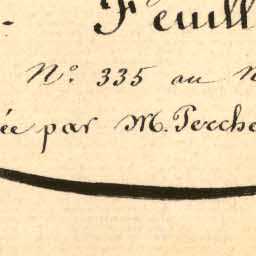 Feuill
N° 335 au N
ée par M. Perche